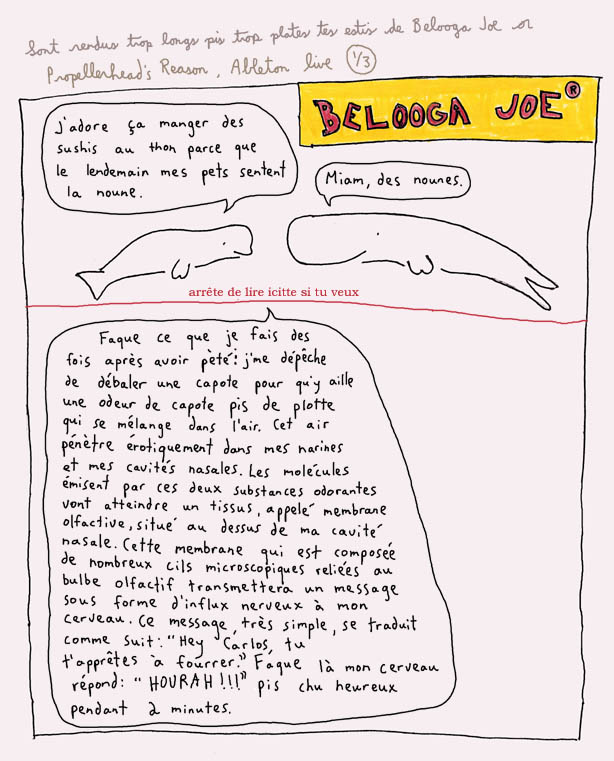 Sont rendus trop longs pis trop plates tes estis de Belooga Joe on
Propellerhead's Reason, Ableton live 1/3
BELOOGA JOE®
j'adore ça manger des
sushis au thon parce que
le lendemain mes pets sentent
la noune.
Miam, des nounes.
arrête de lire icitte si tu veux
Faque ce que je fais des
fois après avoir pèté: j'me dépêche
de débaler une capote pour qu'y aille
une odeur de capote pis de plotte
qui se mélange dans l'air. Cet air
pénètre érotiquement dans mes narines
et mes cavités nasales. Les molécules
émisent par ces deux substances odorantes
vont atteindre un tissus, appelé membrane
olfactive, situé au dessus de ma cavité
nasale. Cette membrane qui est composée
de nombreux cils microscopiques reliées au
bulbe olfactif transmettera un message
sous forme d'influx nerveux à mon
cerveau. Ce message, très simple, se traduit
comme suit: "Hey Carlos, tu
t'apprêtes à fourrer." Faque là mon cerveau
répond: "HOURAH!!!" pis chu heureux
pendant 2 minutes.